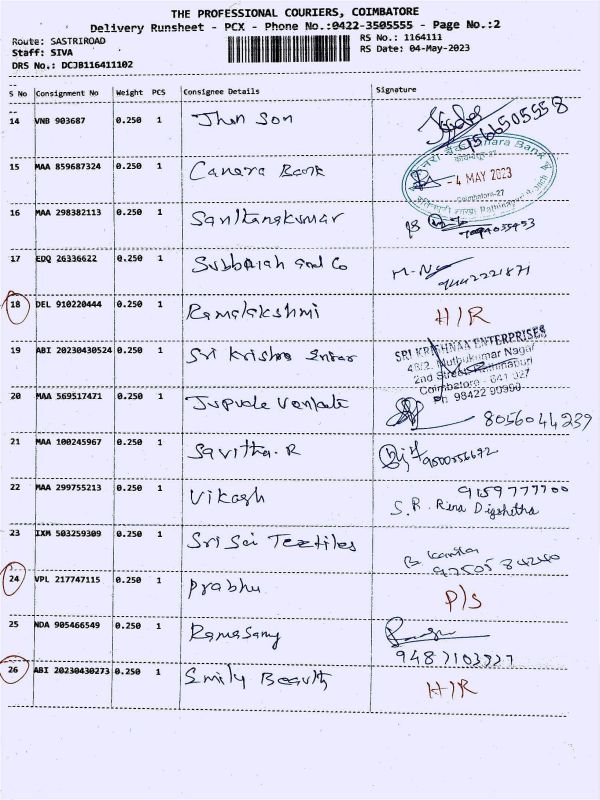 THE PROFESSIONAL COURIERS, COIMBATORE
Delivery Runsheet - PCX - Phone No.:0422-3505555 - Page No.:2
Route: SASTRIROAD RS No.: 1164111
Staff: SIVA RS Date: 04-May-2023
DRS No.: DCJB116411102
S No Consignment No Weight PCS Consignee Details Signature
14 VNB 903687 0.250 1 Jhon Son 9566505558
15 MAA 859687324 0.250 1 Canara Bank - 4 MAY 2023
Coimbatore-27
16 MAA 298382113 0.250 1 Santhanakumar
17 EDQ 26336622 0.250 1 Subbaiah and Co 9442221871
18 DEL 910220444 0.250 1 Ramalakshmi H/R
19 ABI 20230430524 0.250 1 Sri Krishna Enter SRI KRISHNAA ENTERPRISES
48/2, Muthukumar Nagar
2nd Street, Rathinapuri
Coimbatore - 641 027
Ph: 98422 90990
20 MAA 569517471 0.250 1 8056044239
21 MAA 100245967 0.250 1 Savitha.R 9500556672
22 MAA 299755213 0.250 1 Vikash 9159777700
S.R.
23 IXM 503259309 0.250 1 Sri Sai Textiles B. Kamila
24 VPL 217747115 0.250 1 Prabhu P/S
25 NDA 905466549 0.250 1 Ramasamy
26 ABI 20230430273 0.250 1 Smily Beauty H/R